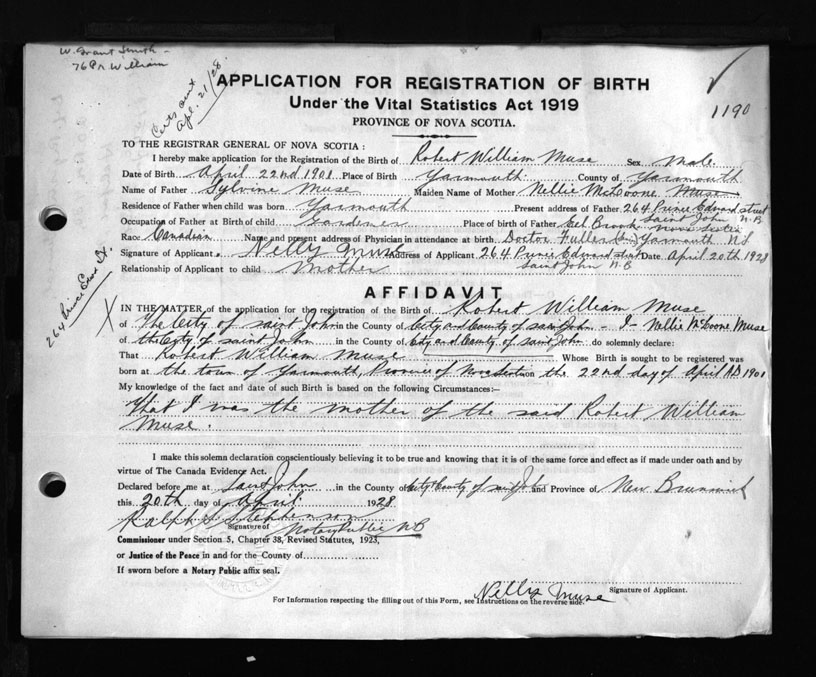 W. Grant Smith -
76 Pr. William
Certs sent
Apl. 21/28
1190
APPLICATION FOR REGISTRATION OF BIRTH
Under the Vital Statistics Act 1919
PROVINCE OF NOVA SCOTIA.
TO THE REGISTRAR GENERAL OF NOVA SCOTIA :
I hereby make application for the Registration of the Birth of Robert William Muse Sex Male
Date of Birth April 22nd 1901 Place of Birth Yarmouth County of Yarmouth
Name of Father Sylvine Muse Maiden Name of Mother Nellie McCoone Muse
Residence of Father when child was born Yarmouth Present address of Father 264 Prince Edward street
Saint John N.B
Occupation of Father at Birth of child Gardener Place of birth of Father Eel Brook Nova Scotia
Race Canadian Name and present address of Physician in attendance at birth Doctor Fuller Yarmouth N S
Signature of Applicant. Nelly Muse Address of Applicant 264 Prince Edward street Date April 20th 1928
Relationship of Applicant to child Mother Saint John N.B
264 Prince Edward St.
AFFIDAVIT
X
IN THE MATTER of the application for the registration of the Birth of Robert William Muse
of The City of Saint John in the County of City and County of Saint John - I - Nellie McCoone Muse
of the City of Saint John in the County of City and County of Saint John do solemnly declare:
That Robert William Muse Whose Birth is sought to be registered was
born at the town of Yarmouth, Province of Nova Scotia on the 22nd day of April A.D 1901
My knowledge of the fact and date of such Birth is based on the following Circumstances:-
That I was the mother of the said Robert William
Muse.
I make this solemn declaration conscientiously believing it to be true and knowing that it is of the same force and effect as if made under oath and by
virtue of The Canada Evidence Act.
Declared before me at Saint John in the County of City & County of Saint John and Province of New Brunswick
this 20th day of April 1928
Ralph S Stephenson
Signature of Notary Public N.B
Commissioner under Section 5, Chapter 38, Revised Statutes, 1923,
or Justice of the Peace in and for the County of
If sworn before a Notary Public affix seal.
Nelly Muse
Signature of Applicant.
For Information respecting the filling out of this Form, see Instructions on the reverse side.